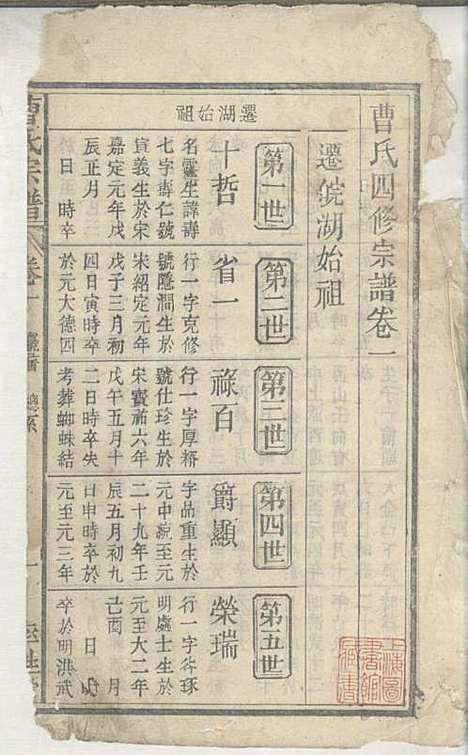 曹氏四修宗譜卷一
遷皖湖始祖
遷湖始祖
第一世
十哲
名靈生諱壽
七字壽仁號
寅義生於宋
嘉定元年戌
辰正月
於日 時卒
第二世
省一
行一字克修
號隱澗生於
宋紹定元年
戊子三月初
四日寅時卒
於元大德四
第三世
祿百
行一字厚
號仕珍生於
宋寶祐六年
戊午五月十
二日時卒央
考葬蜘蛛結
第四世
爵顯
字品重生於
元中統至元
二十九年壬
辰五月初九
日申時卒於
元至元三年
第五世
榮瑞
行一字谷琢
明處士生於
元至大二年
己酉 月
日 時
卒於明洪武
曹氏宗譜
卷一
上海圖
書館
藏書